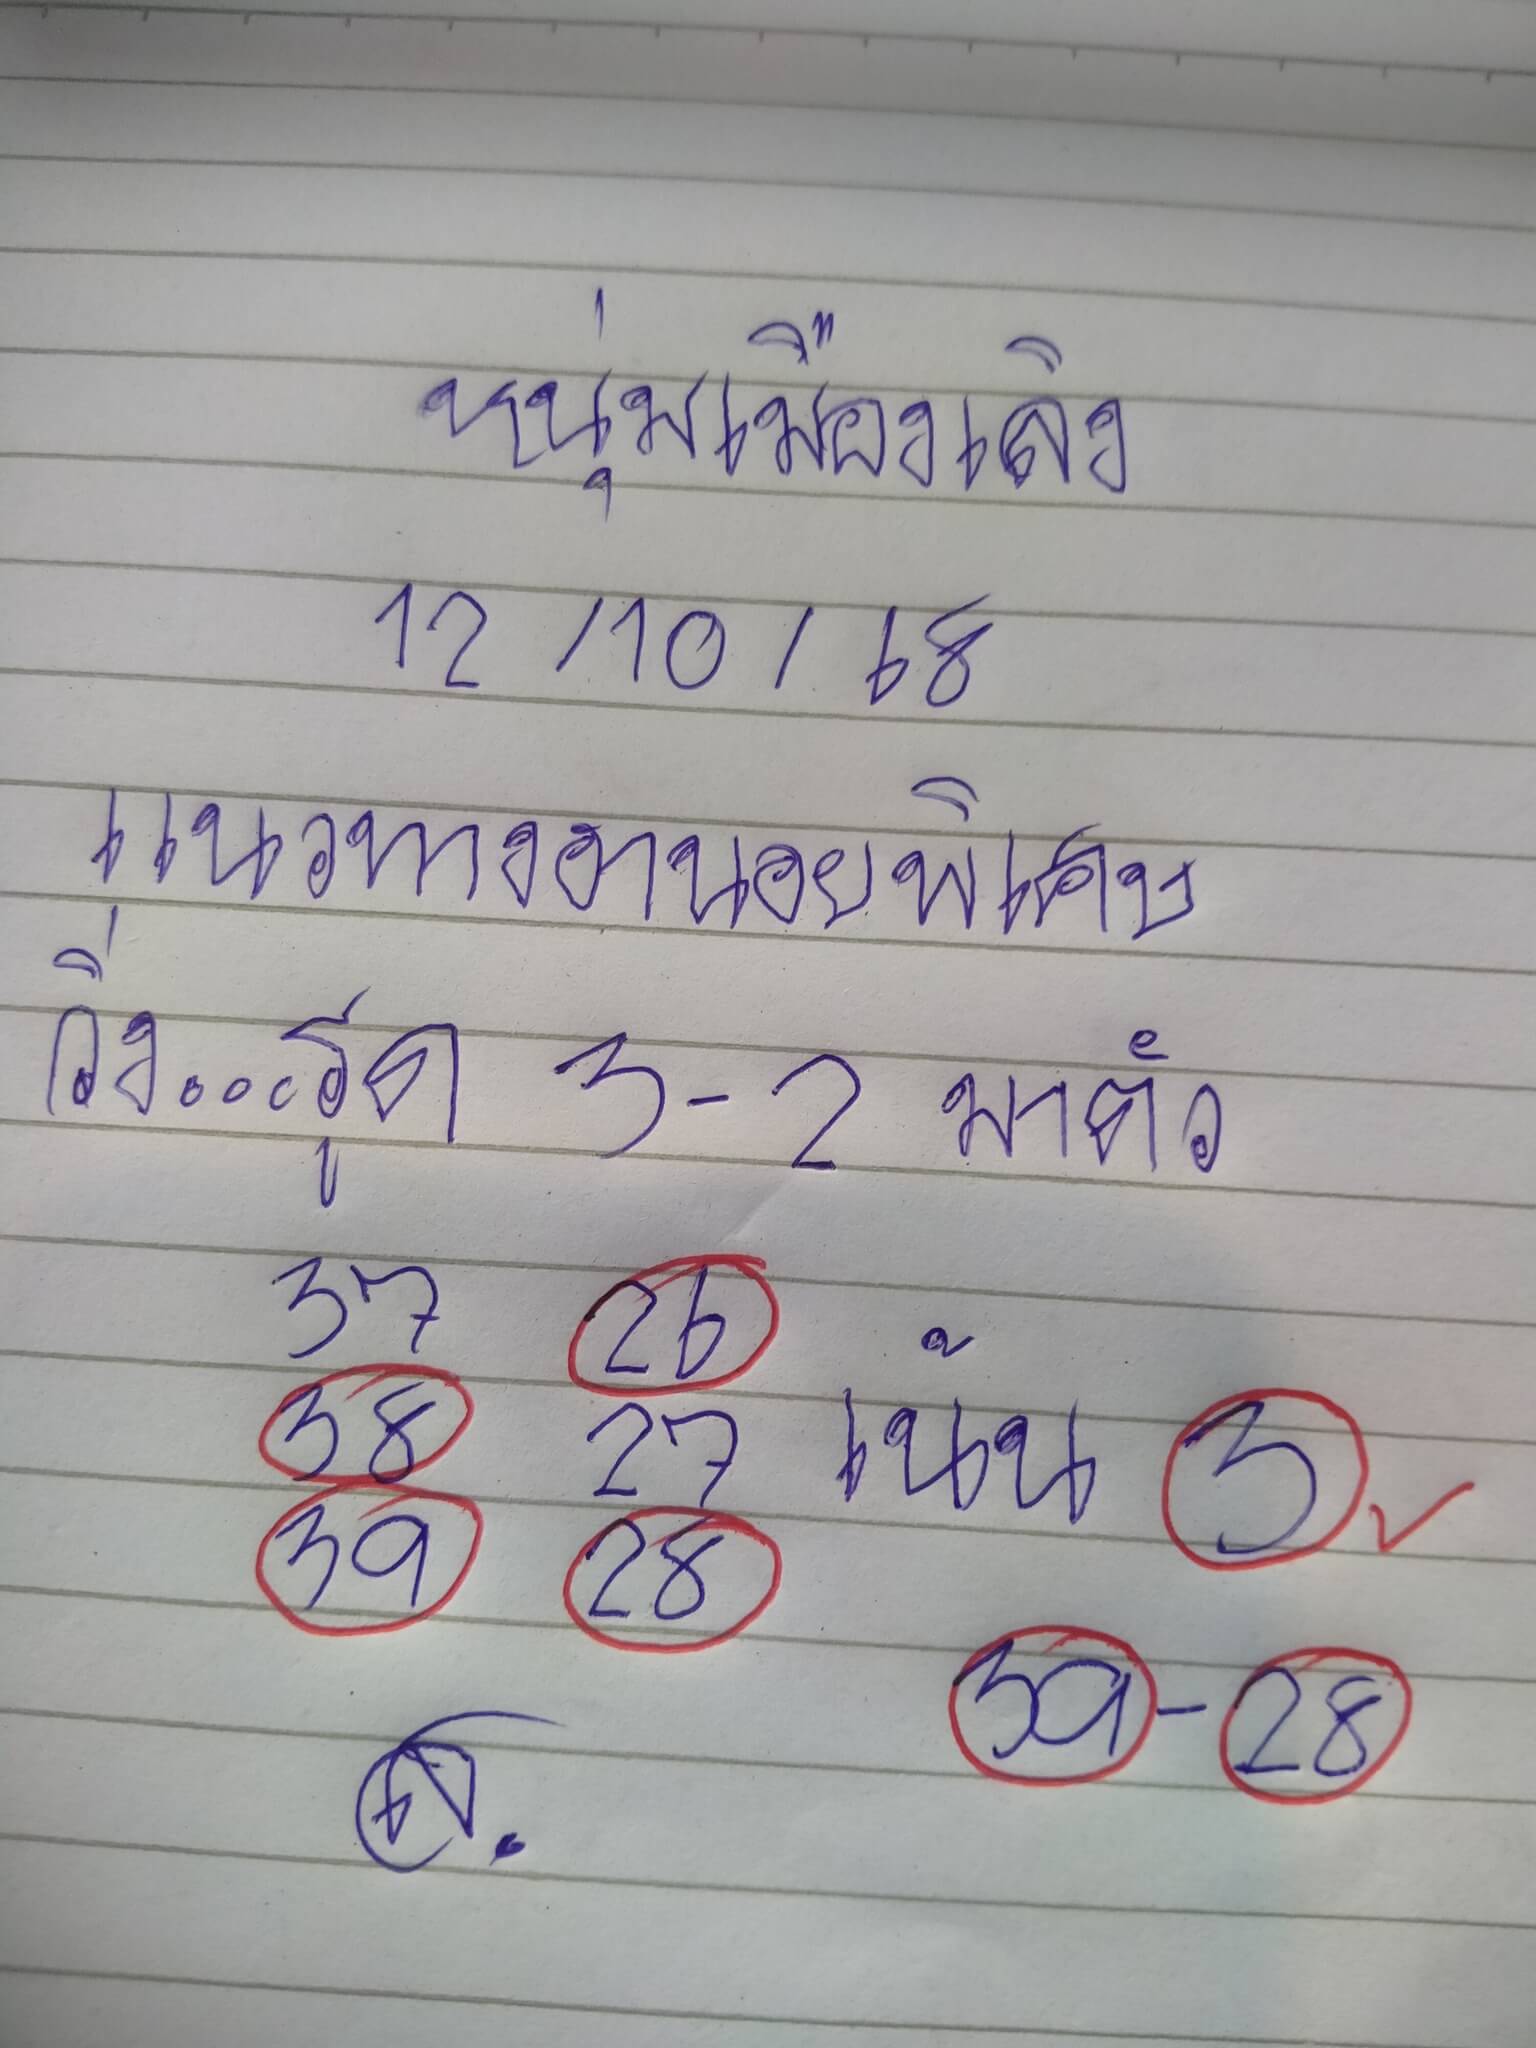 หนุ่มเมืองเลิง
12 /10 / 68
แนวทางฮานอยพิเศษ
วิ่ง...รูด 3-2 มาตัว
37 26
38 27 เน้น 3
39 28
39-28